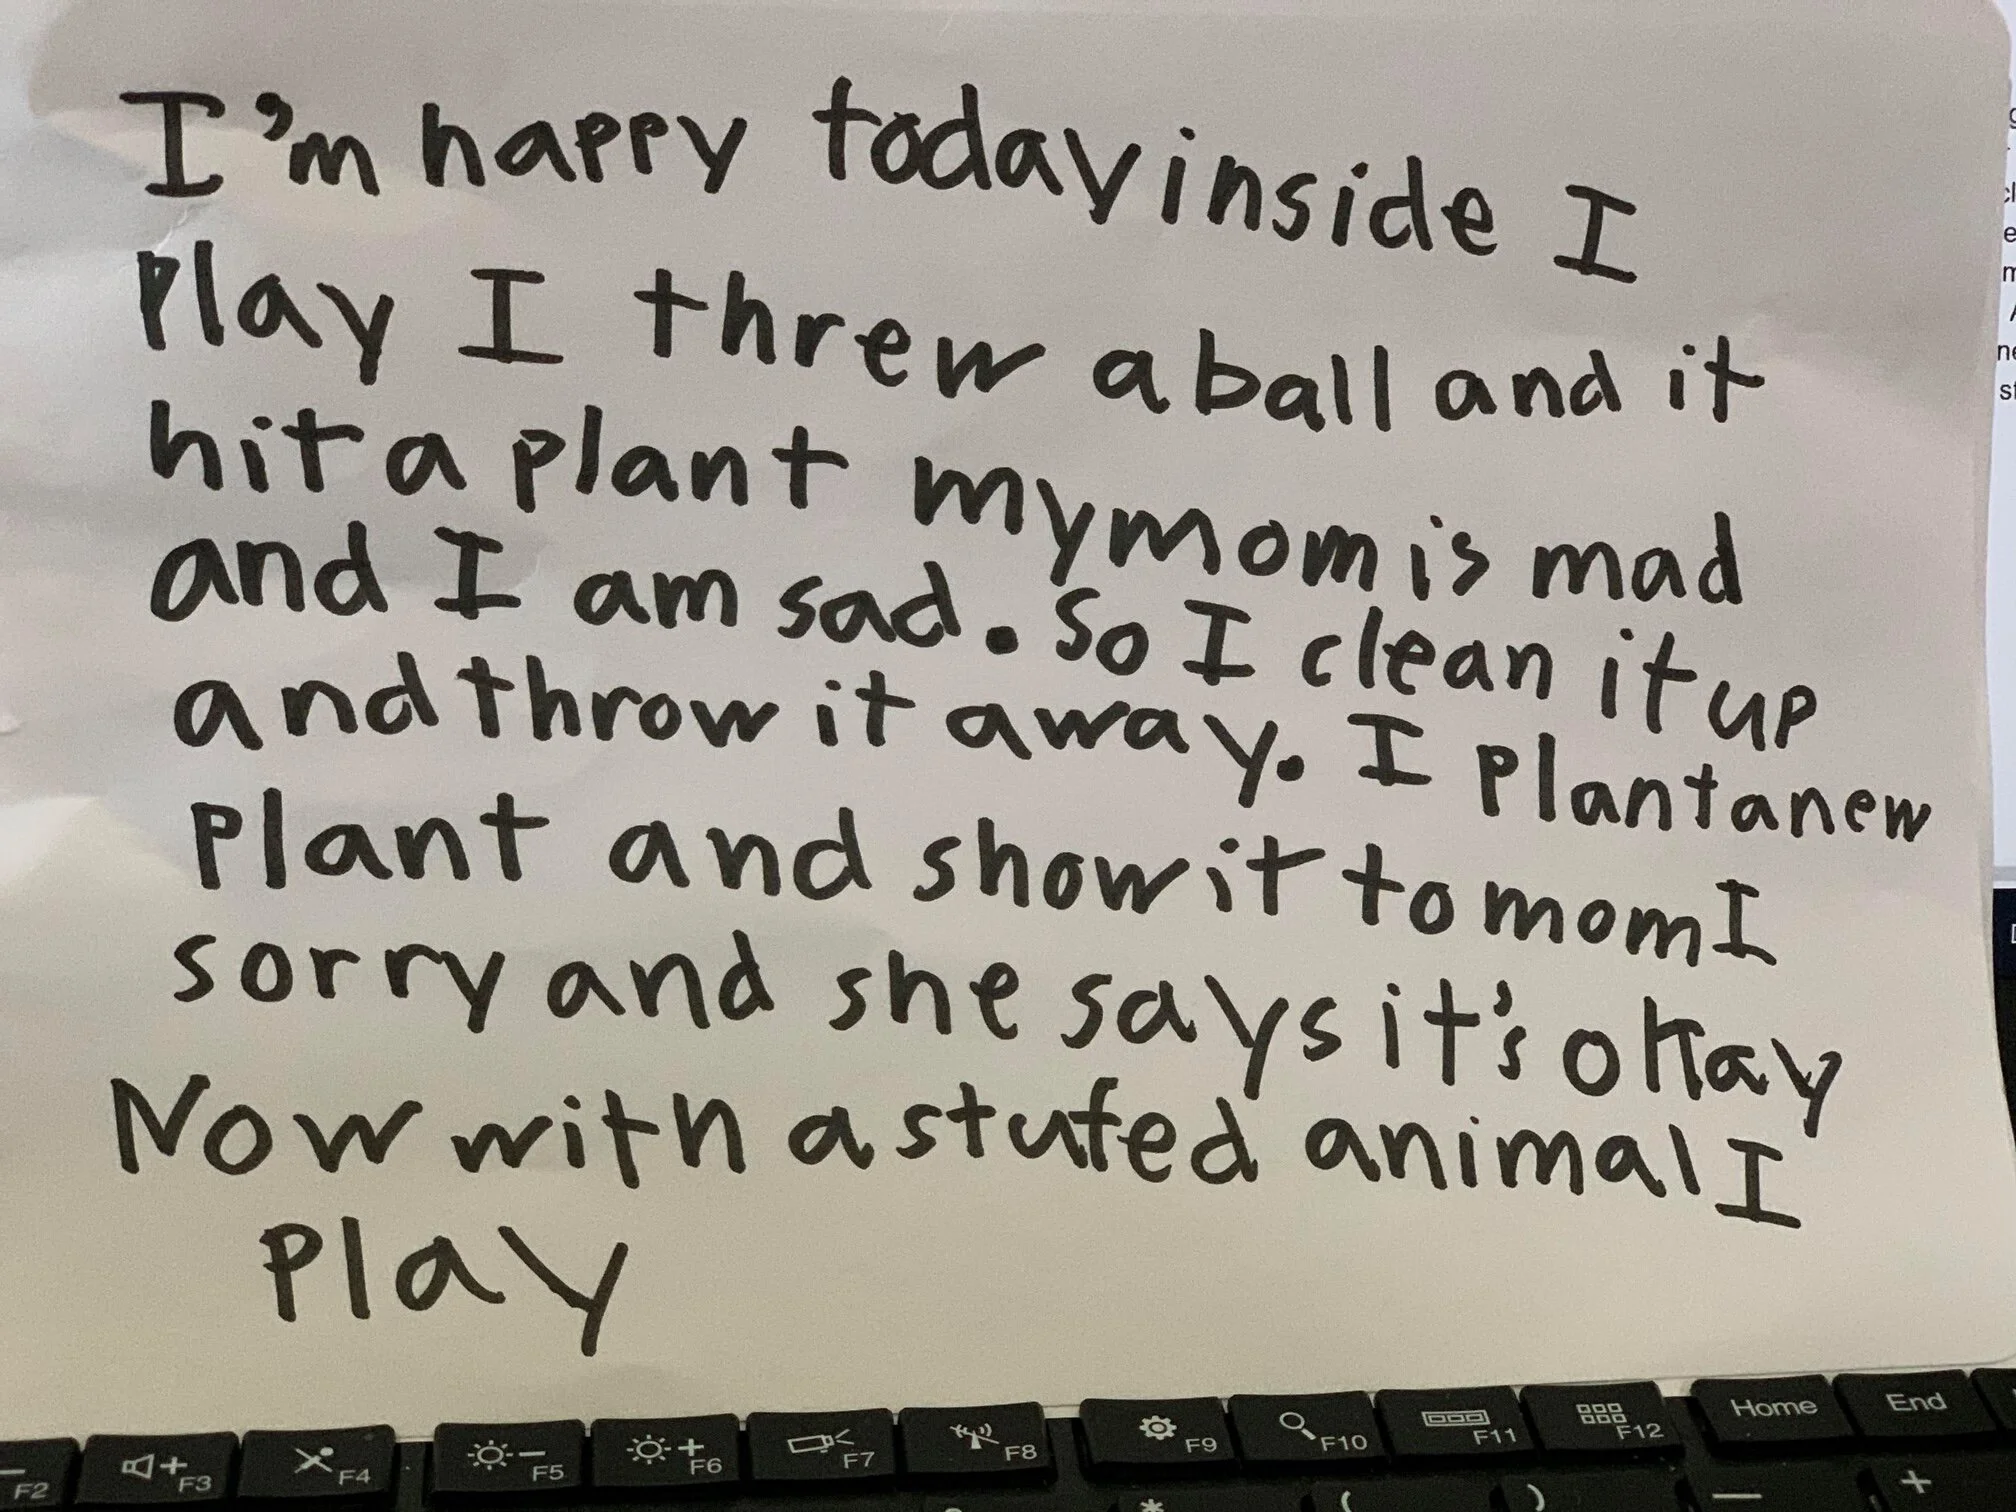 I'm happy today inside I
play I threw a ball and it
hit a plant my mom is mad
and I am sad. So I clean it up
and throw it away. I plant a new
plant and show it to mom I
sorry and she says it's okay
Now with a stufed animal I
play
F2
F3
F4
F5
F6
F7
F8
F9
F10
F11
F12
Home
End